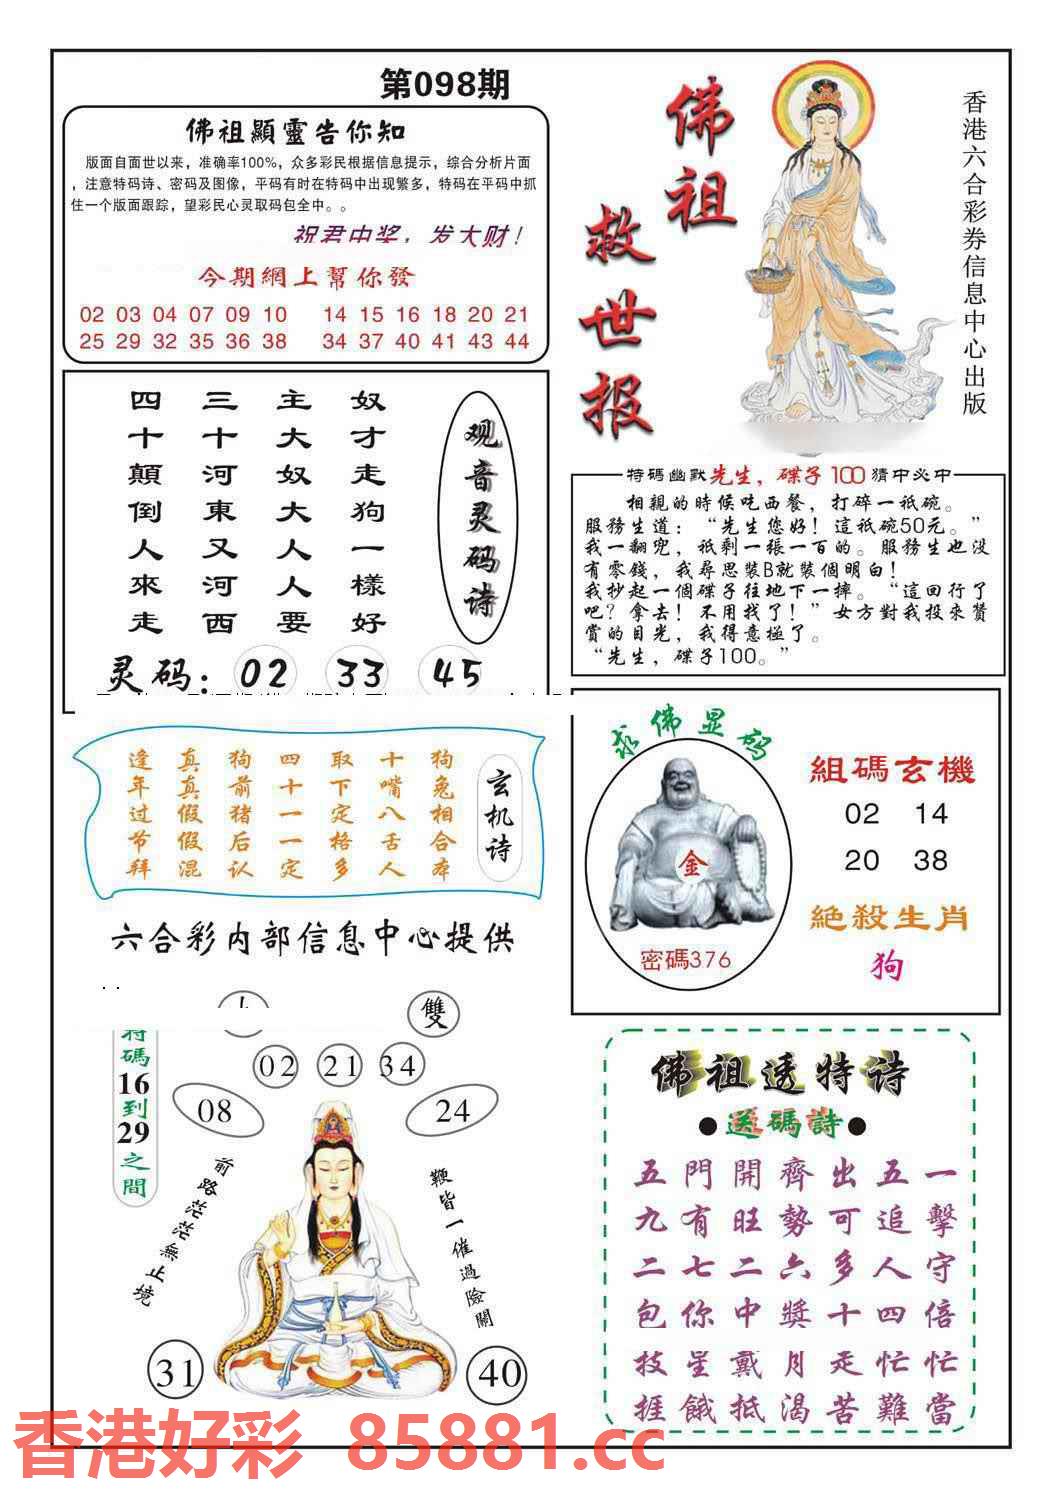 第098期
佛祖顯靈告你知
版面自面世以来，准确率100%，众多彩民根据信息提示，综合分析片面
，注意特码诗、密码及图像，平码有时在特码中出现繁多，特码在平码中抓
住一个版面跟踪，望彩民心灵取码包全中。。
祝君中奖，发大财！
今期網上幫你發
02 03 04 07 09 10 14 15 16 18 20 21
25 29 32 35 36 38 34 37 40 41 43 44
佛祖
救世报
香港六合彩券信息中心出版
观音灵码诗
奴才走狗一樣好
主大奴大人人要
三十河東又河西
四十顛倒人來走
灵码：02 33 45
特碼幽默先生，碟子100猜中必中
相親的時候吃西餐，打碎一衹碗。
服務生道：“先生您好！這衹碗50元。”
我一翻兜，衹剩一張一百的。服務生也没
有零錢，我尋思裝B就裝個明白！
我抄起一個碟子往地下一摔。“這回行了
吧？拿去！不用找了！”女方對我投來贊
賞的目光，我得意極了。
“先生，碟子100。”
玄机诗
狗兔相合本
十嘴八舌人
取下定格多
四十一一定
狗前猪后认
真真假假混
逢年过节拜
六合彩内部信息中心提供
求佛显码
金
密碼376
組碼玄機
02 14
20 38
絕殺生肖
狗
雙
02 21 34
08 24
特碼16到29之間
前路茫茫無止境
鞭皆一催過險關
31 40
佛祖透特诗
●送碼詩●
五門開齊出五一
九有旺勢可追擊
二七二六多人守
包你中獎十四倍
技星戴月走忙忙
捱餓抵渴苦難當
香港好彩 85881.cc